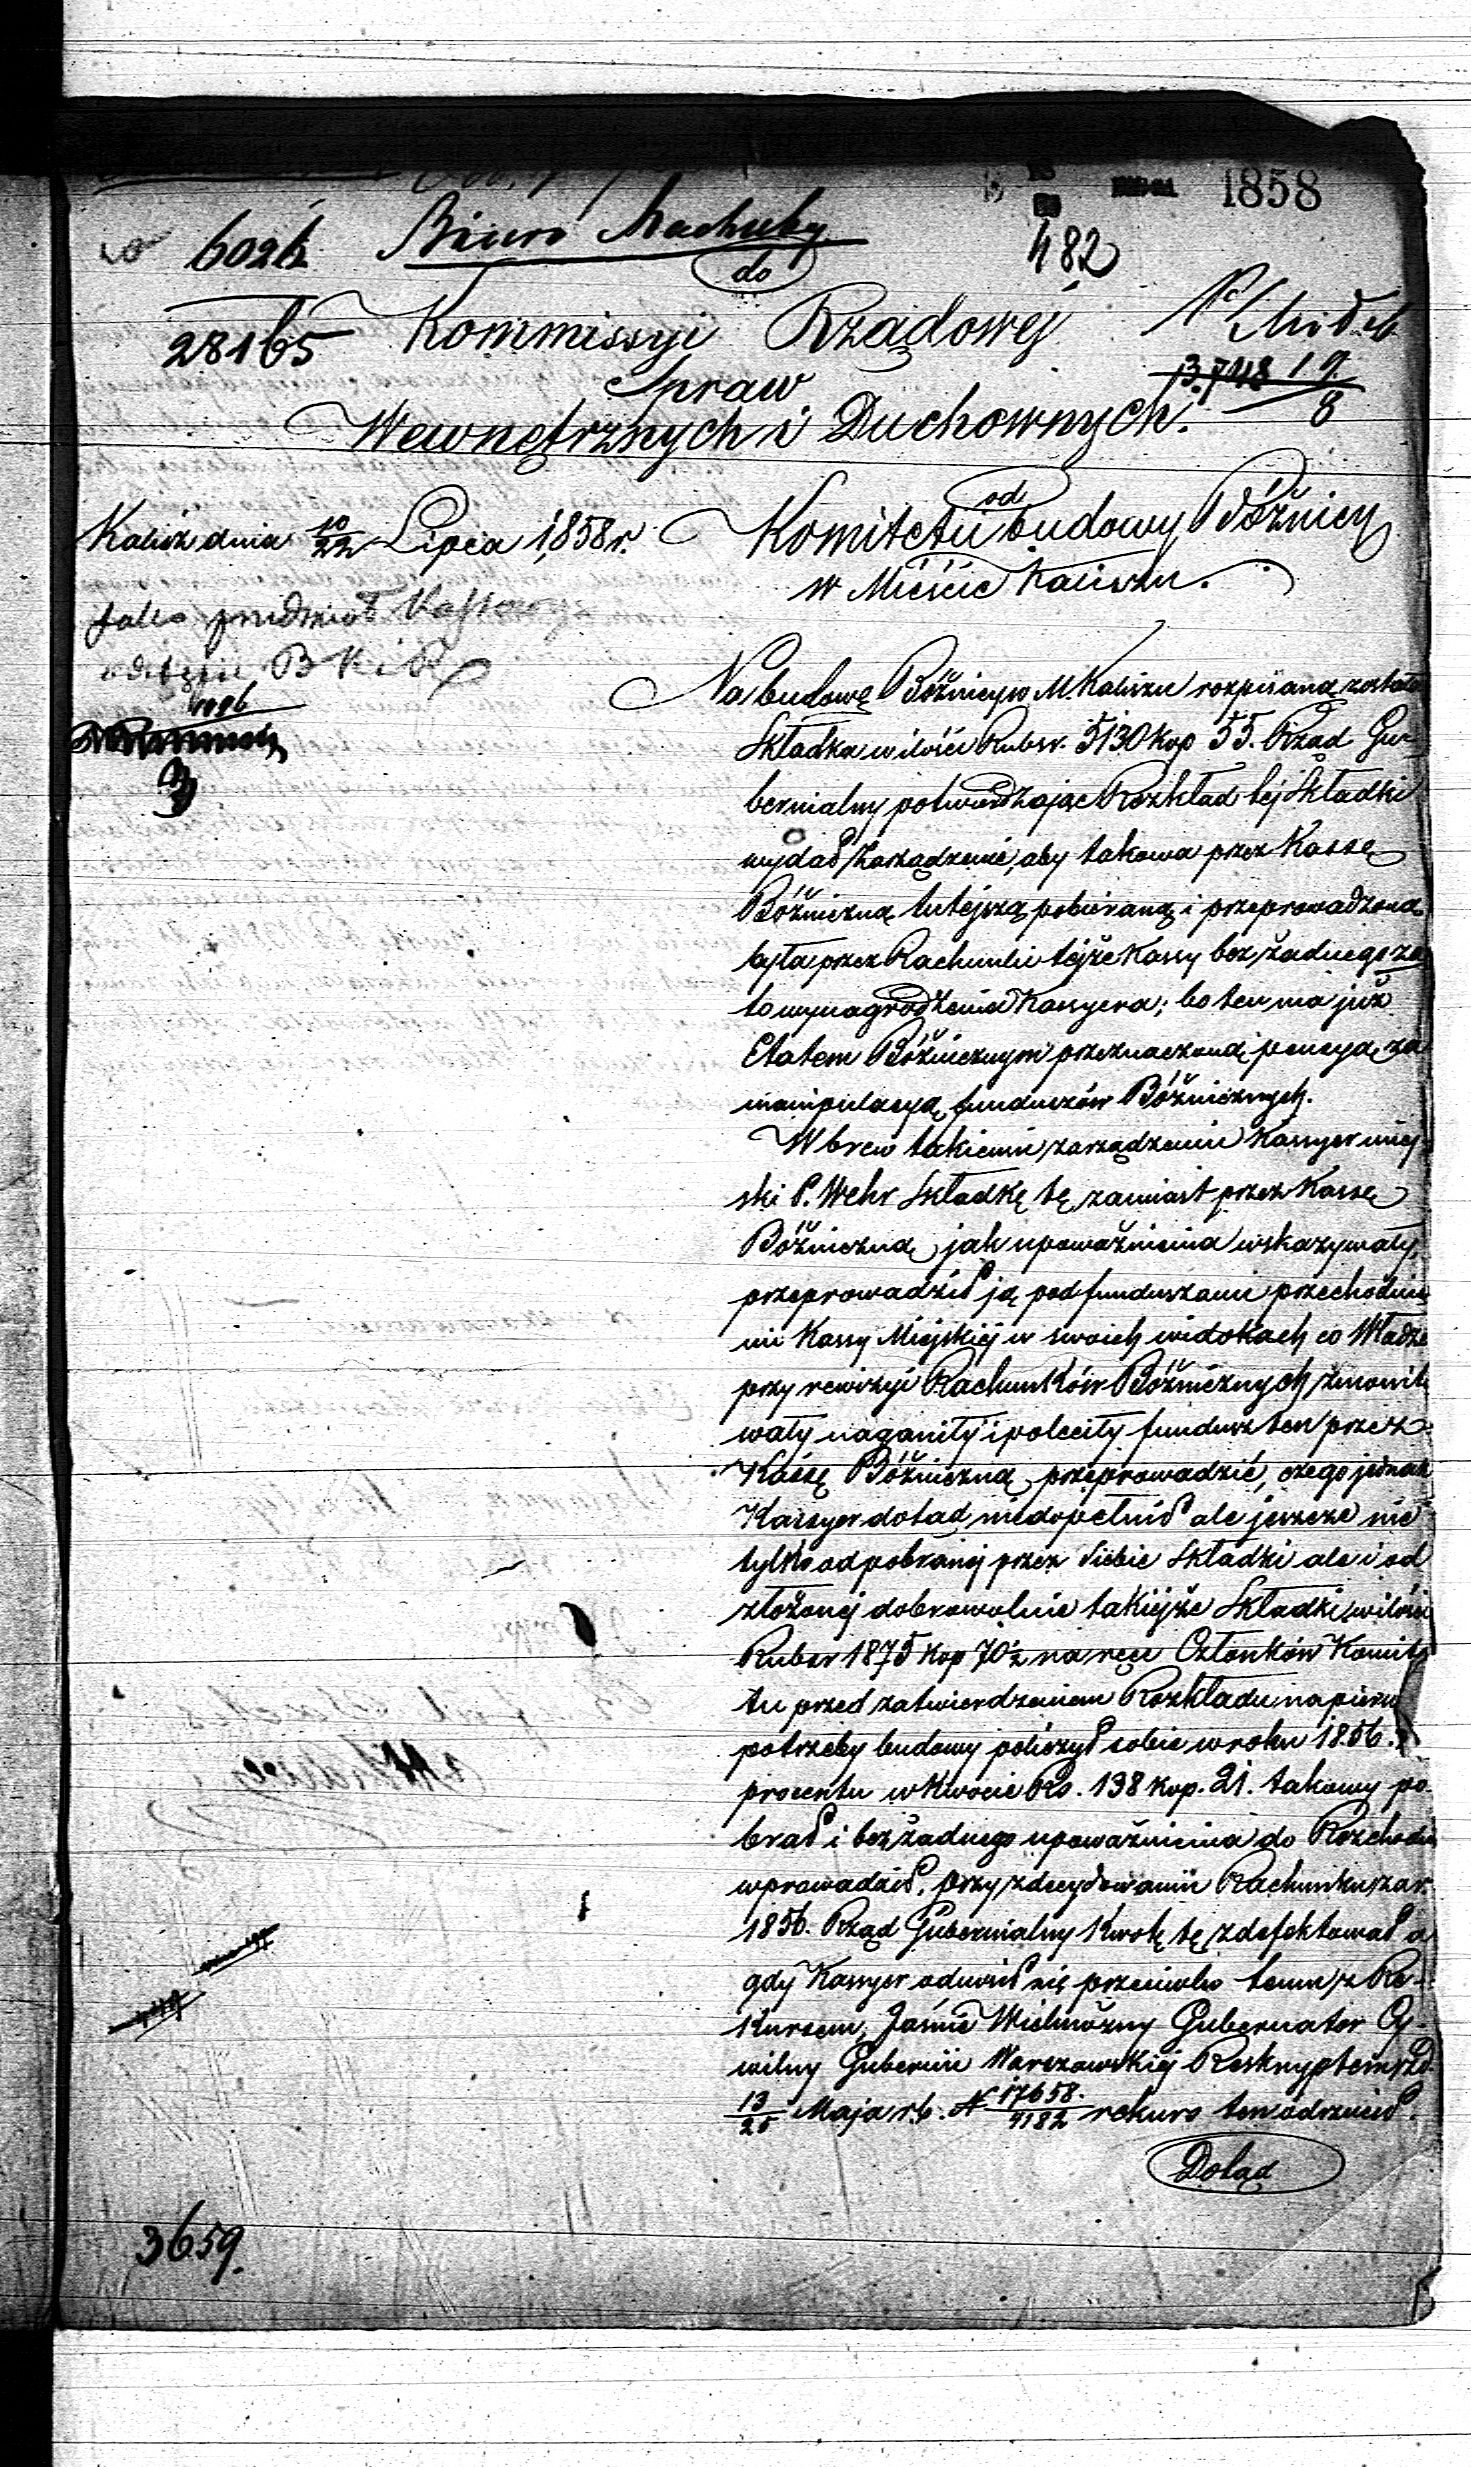 1858
6026 Biuro Rachuby 482
do
28165 Kommissyi Rządowej
Spraw
13748 19/8
Wewnętrznych i Duchownych.
Kalisz dnia 10/22 Lipca 1858 r.
od
Komitetu budowy Bóźnicy
w Mieście Kaliszu.
jako przedmiot Kassowy
Na budowę Bóżnicy w M Kaliszu rozpisaną została
Składka w ilości Rubsr. 5130 kop 55. Rząd Gu-
bernialny potwierdzając Rozkład tej Składki
wydał Zarządzenie, aby takowa przez Kassę
Bóżniczną tutejszą pobieraną i przeprowadzoną
była przez Rachunki tejże Kassy bez żadnego za
to wynagrodzenia Kassyera; bo ten ma już
Etatem Bóżnicznym przeznaczoną pensyą za
manipulacyą funduszów Bóżnicznych.
Wbrew takiemu zarządzeniu Kassyer miej-
ski P. Wehr Składkę tę zamiast przez Kassę
Bóżniczną jak upoważnienia wskazywały,
przeprowadził ją pod funduszami przechodnie
mi Kassy Miejskiej w swoich widokach co Władze
przy rewizyi Rachunków Bóżnicznych
naganiły i poleciły fundusz ten przez
Kassę Bóżniczną przeprowadzić, czego jednak
Kassyer dotąd niedopełnił ale jeszcze nie
tylko od pobranej przez Siebie Składki ale i od
złożonej dobrowolnie takiejże Składki w ilości
Rubsr 1875 kop 70½ na ręce Członków Komite
tu przed zatwierdzeniem Rozkładu na pierw
potrzeby budowy policzył sobie w roku 1856.
procentu w kwocie Rs. 138 kop. 21. takowy po-
brał i bez żadnego upoważnienia do Rozchodu
wprowadził, przy zdecydowaniu Rachunku za r.
1856. Rząd Gubernialny Kwotę tę zdefektował a
gdy Kassyer odwołał się przeciwko temu z Re-
kursem, Jaśnie Wielmożny Gubernator Cy-
wilny Gubernii Warszawskiej Reskryptem z d.
13/25 Maja r.b. N 17658./4182 rekurs ten odrzucił.
Dotąd
3659.